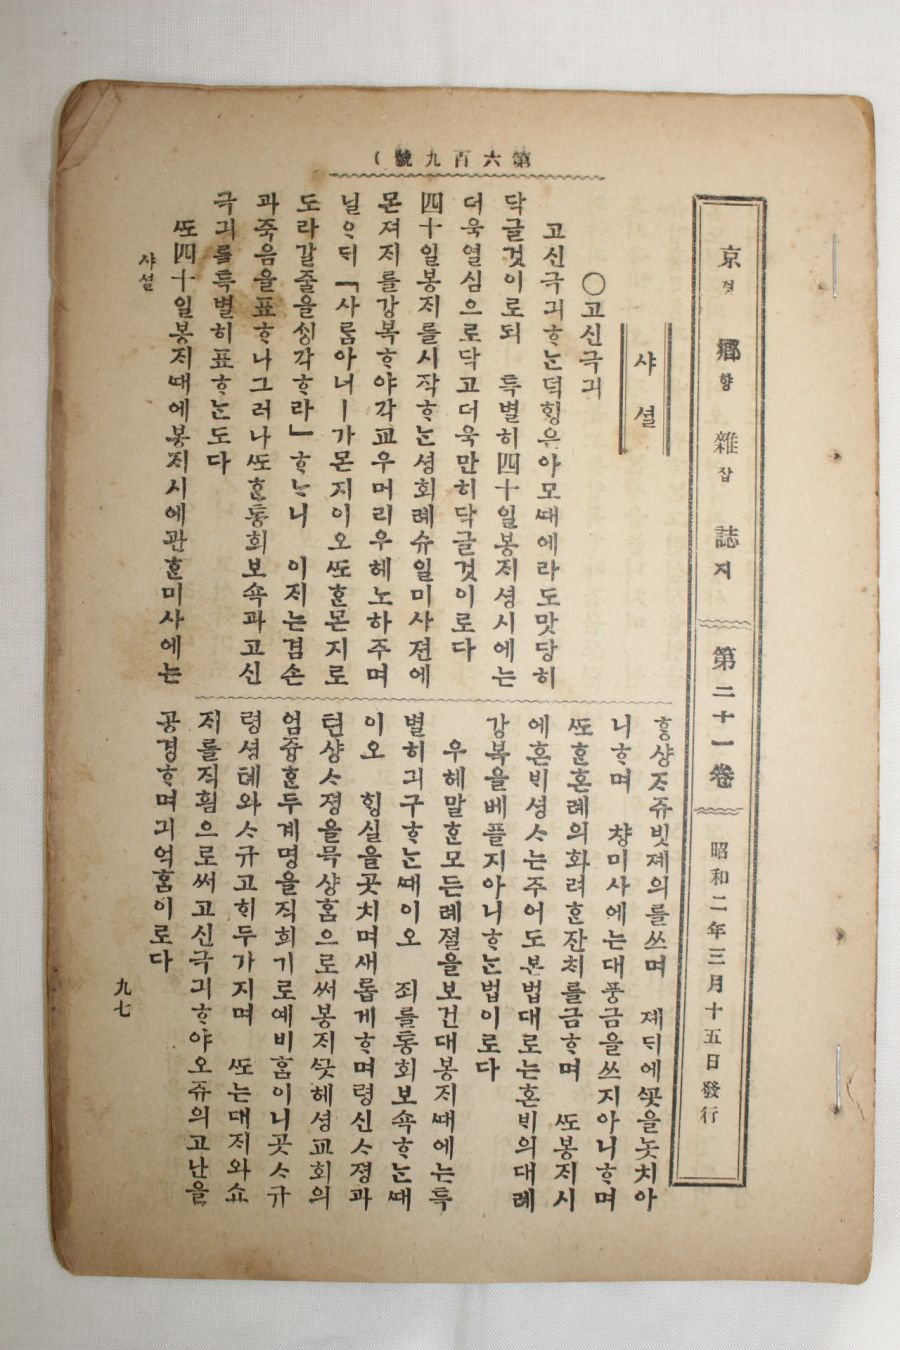 第六百九號)
京경 鄕향 雜잡 誌지 第二十一卷 昭和二年三月十五日發行
샤셜
○고신극긔
고신극긔ᄒᆞᄂᆞᆫ덕ᄒᆡᆼ은아모ᄯᅢ에라도맛당히
닥글것이로되 특별히四十일봉ᄌᆡ셩시에는
더욱열심으로닥고더욱만히닥글것이로다
四十일봉ᄌᆡ를시작ᄒᆞᄂᆞᆫ셩회례슈일미사젼에
몬져ᄌᆡ를강복ᄒᆞ야각교우머리우헤노하주며
닐ᄋᆞᄃᆡ「사ᄅᆞᆷ아너ㅣ가몬지이오ᄯᅩᄒᆞᆫ몬지로
도라갈줄을ᄉᆡᆼ각ᄒᆞ라」ᄒᆞᄂᆞ니 이ᄌᆡ는겸손
과죽음을표ᄒᆞ나그러나ᄯᅩᄒᆞᆫ통회보쇽과고신
극긔를특별히표ᄒᆞᄂᆞᆫ도다
ᄯᅩ四十일봉ᄌᆡᄯᅢ에봉ᄌᆡ시에관ᄒᆞᆫ미사에는
ᄒᆞᆼ샹ᄌᆞ쥬빗졔의를쓰며 졔ᄃᆡ에ᄭᅩᆺ을놋치아
니ᄒᆞ며 챵미사에는대풍금을쓰지아니ᄒᆞ며
ᄯᅩᄒᆞᆫ혼례의화려ᄒᆞᆫ잔치를금ᄒᆞ며 ᄯᅩ봉ᄌᆡ시
에혼ᄇᆡ셩ᄉᆞ는주어도본법대로는혼ᄇᆡ의대례
강복을베플지아니ᄒᆞᄂᆞᆫ법이로다
우헤말ᄒᆞᆫ모든례졀을보건대봉ᄌᆡᄯᅢ에는특
별히긔구ᄒᆞᄂᆞᆫᄯᅢ이오 죄를통회보쇽ᄒᆞᄂᆞᆫᄯᅢ
이오 ᄒᆡᆼ실을곳치며새롭게ᄒᆞ며령신ᄉᆞ졍과
텬샹ᄉᆞ졍을묵샹홈으로써봉ᄌᆡᄭᅳᆺ헤셩교회의
엄즁ᄒᆞᆫ두계명을직희기로예비홈이니곳ᄉᆞ규
령셩톄와ᄉᆞ규고ᄒᆡ두가지며 ᄯᅩ는대ᄌᆡ와쇼
ᄌᆡ를직흼으로써고신극긔ᄒᆞ야오쥬의고난을
공경ᄒᆞ며긔억홈이로다
샤셜
九七